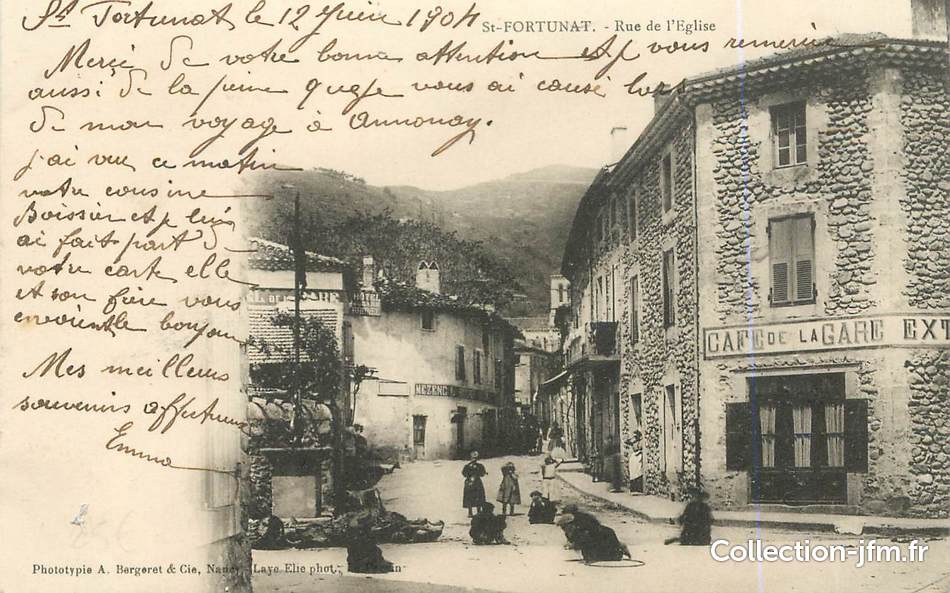 St Fortunat le 12 Juin 1904
St-FORTUNAT. - Rue de l'Eglise
Merçi de votre bonne attention et je vous remercie
aussi de la peine que je vous ai causé lors
de mon voyage à Annonay.
j'ai vu ce matin
votre cousine
Boissier et je lui
ai fait part de
votre carte elle
et son frère vous
envoient le bonjour
Mes meilleurs
souvenirs affectueux
Emma
MEZENC
CAFÉ DE LA GARE EX
Phototypie A. Bergeret & Cie, Nancy
Laye Elie phot.
Collection-jfm.fr